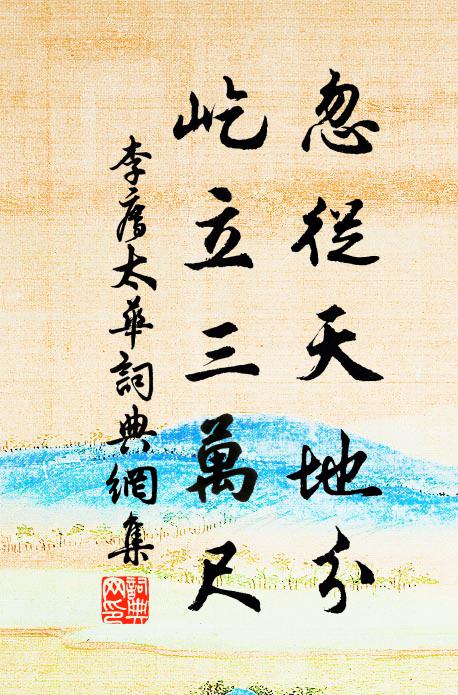 忽從天地分
屹立三萬尺
李廌太華詞典網集
詞典
网印